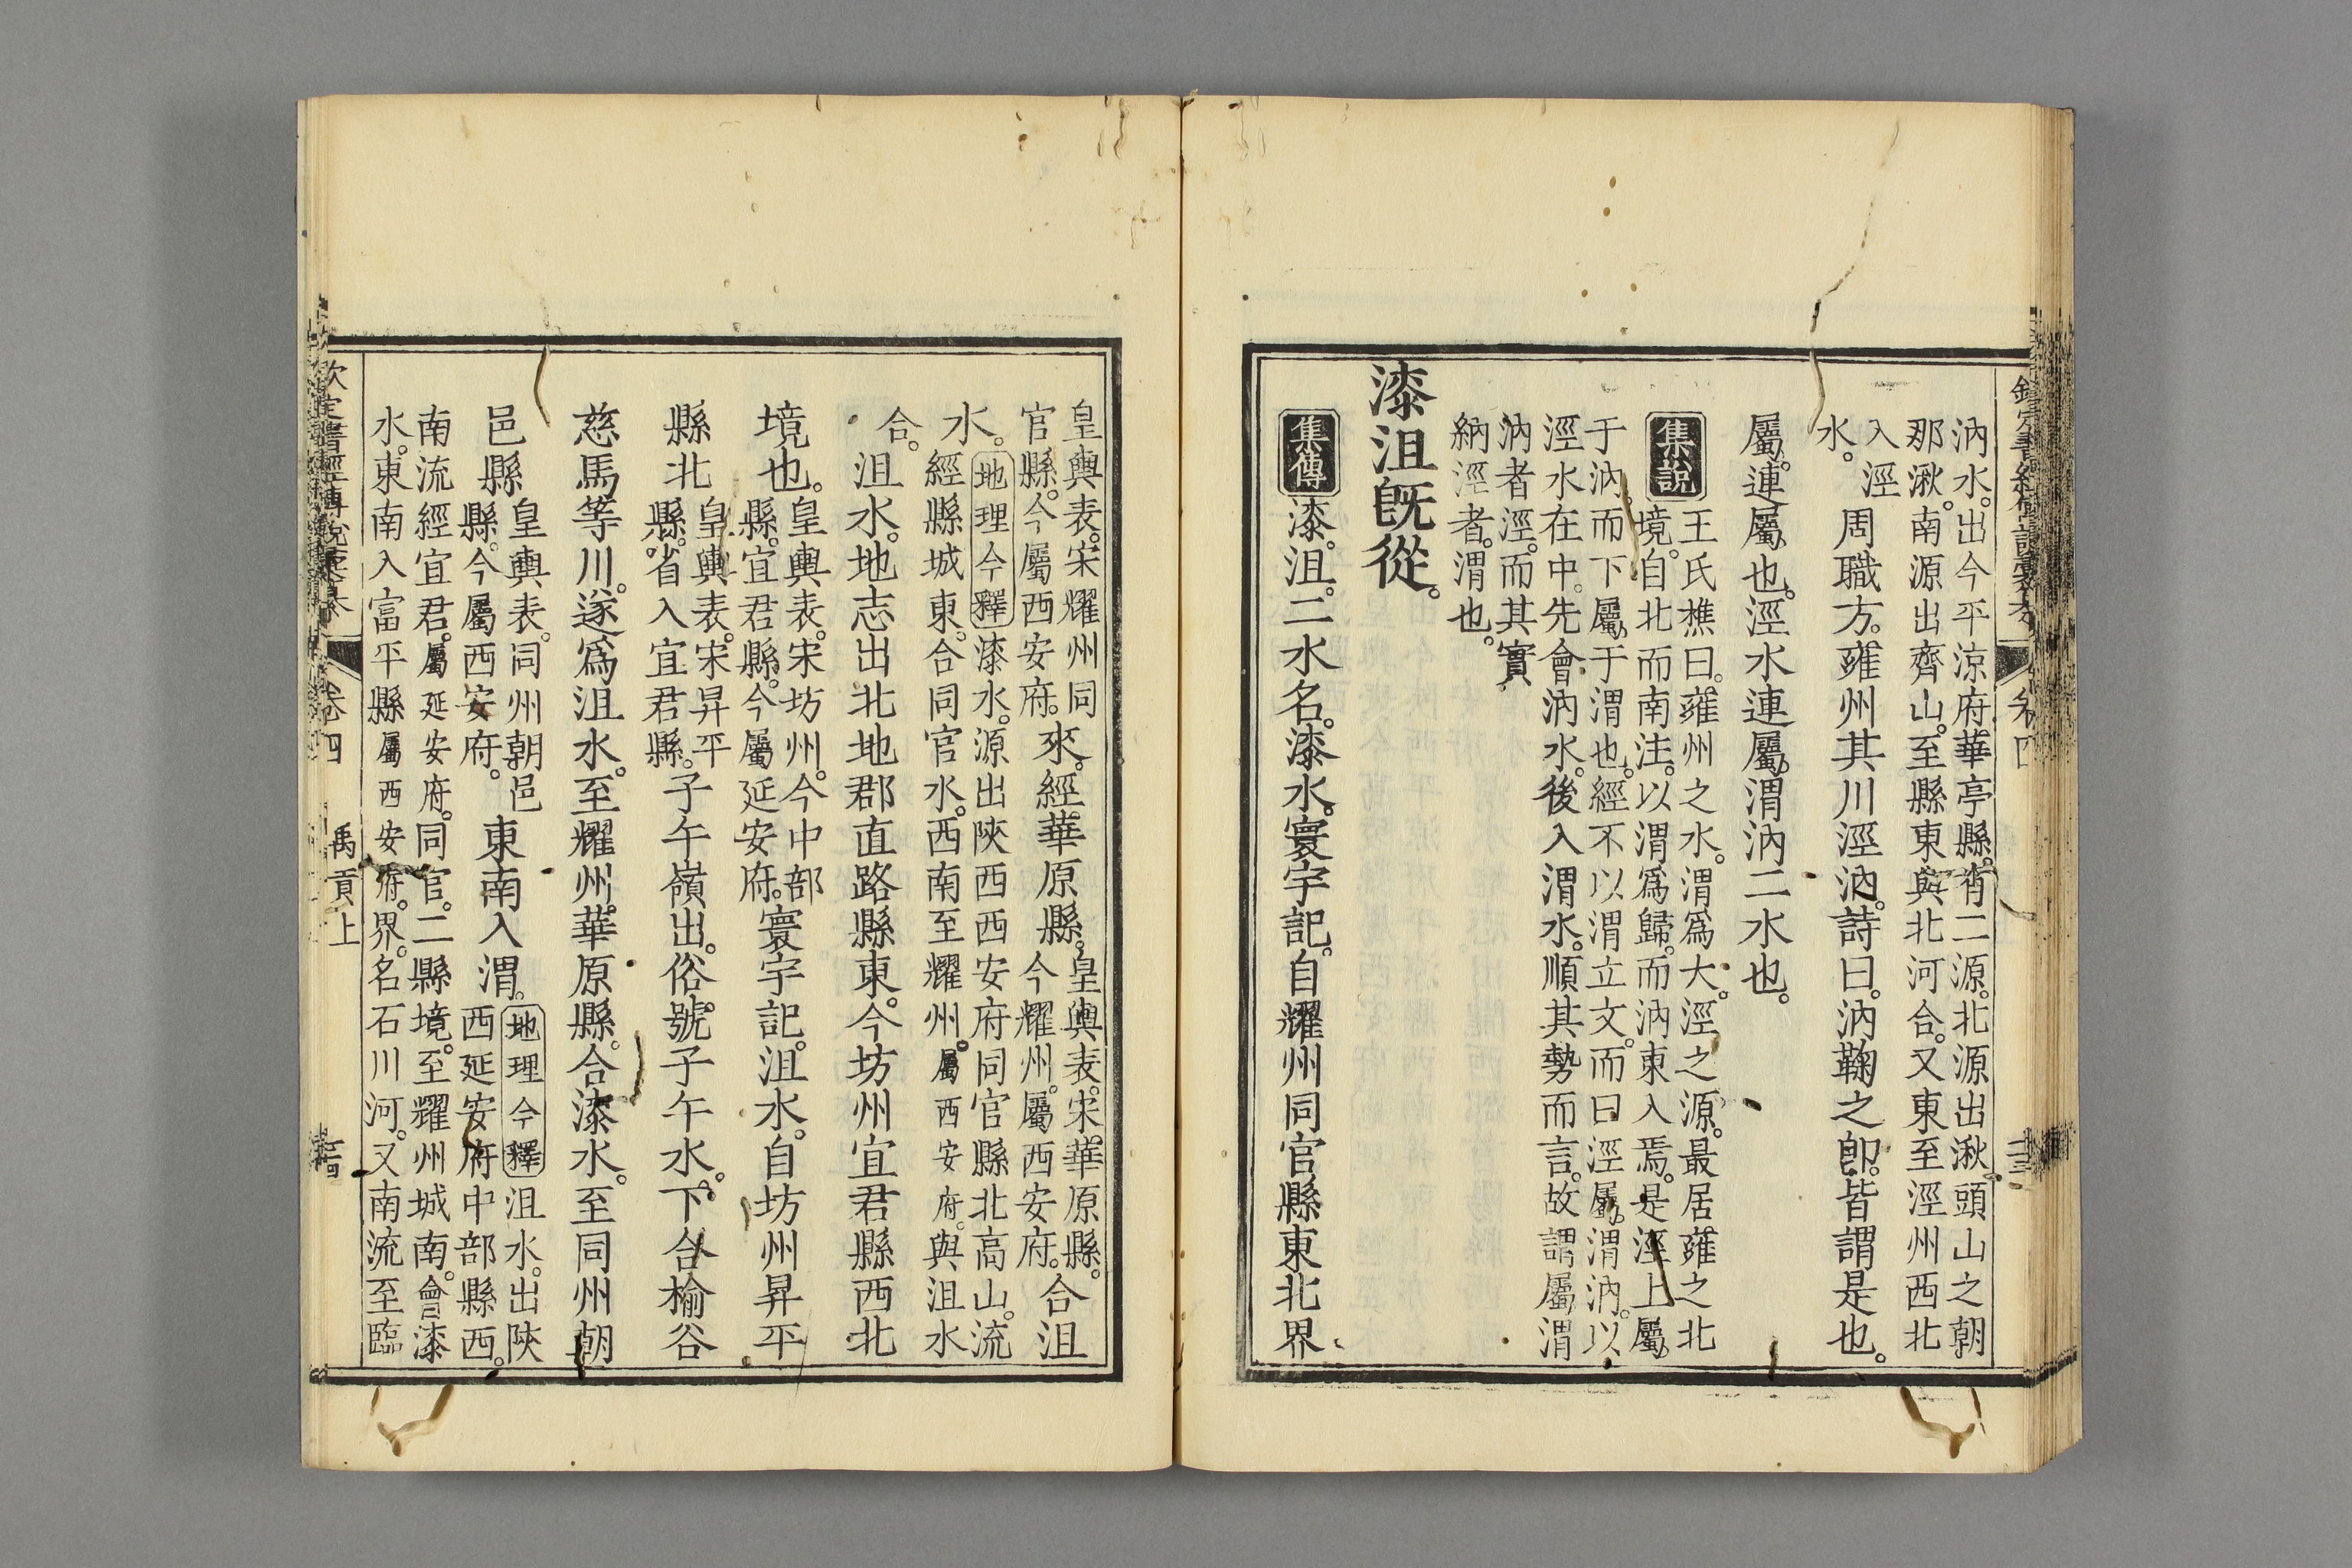 汭水。出今平涼府。華亭縣。有二源。北源出湫頭山之朝
那湫。南源出齊山。至縣東與北河合。又東至涇州西北
入涇
水。
周職方。雍州其川涇汭。詩曰。汭鞠之卽。皆謂是也。
屬。連屬也。涇水連屬。渭汭二水也。
集說
王氏樵曰。雍州之水。渭爲大。涇之源。最居雍之北
境。自北而南注。以渭爲歸。而汭東入焉。是涇上屬。
于汭。而下屬。于渭也。經不以渭立文。而曰涇屬。渭汭。以
涇水在中。先會汭水。後入渭水。順其勢而言。故謂屬渭
汭者涇。而其實
納涇者。渭也。
漆沮旣從。
集傳
漆。沮。二水名。漆水。寰宇記。自耀州同官縣東北界
皇輿表。宋耀州同
官縣。今屬西安府。
來。經華原縣。
皇輿表。宋。華原縣。
今耀州。屬西安府。
合沮
水。
地理今釋
漆水。源出陝西西安府同官縣北高山。流
經縣城東。合同官水。西南至耀州。屬西安府。與沮水
合。
沮水。地志出北地郡直路縣東。今坊州宜君縣西北
境也。
皇輿表。宋坊州。今中部
縣。宜君縣。今屬延安府。
寰宇記。沮水。自坊州昇平
縣北
皇輿表。宋昇平
縣。省入宜君縣。
子午嶺出。俗號子午水。下合榆谷
慈馬等川。遂爲沮水。至耀州。華原縣。合漆水。至同州朝
邑縣
皇輿表。同州朝邑
縣。今屬西安府。
東南入渭。
地理今釋
沮水。出陝
西延安府中部縣西。
南流經宜君。屬延安府。同官。二縣境。至耀州城南。會漆
水。東南入富平縣屬西安府。界。名石川河。又南流至臨
卷四
禹貢上